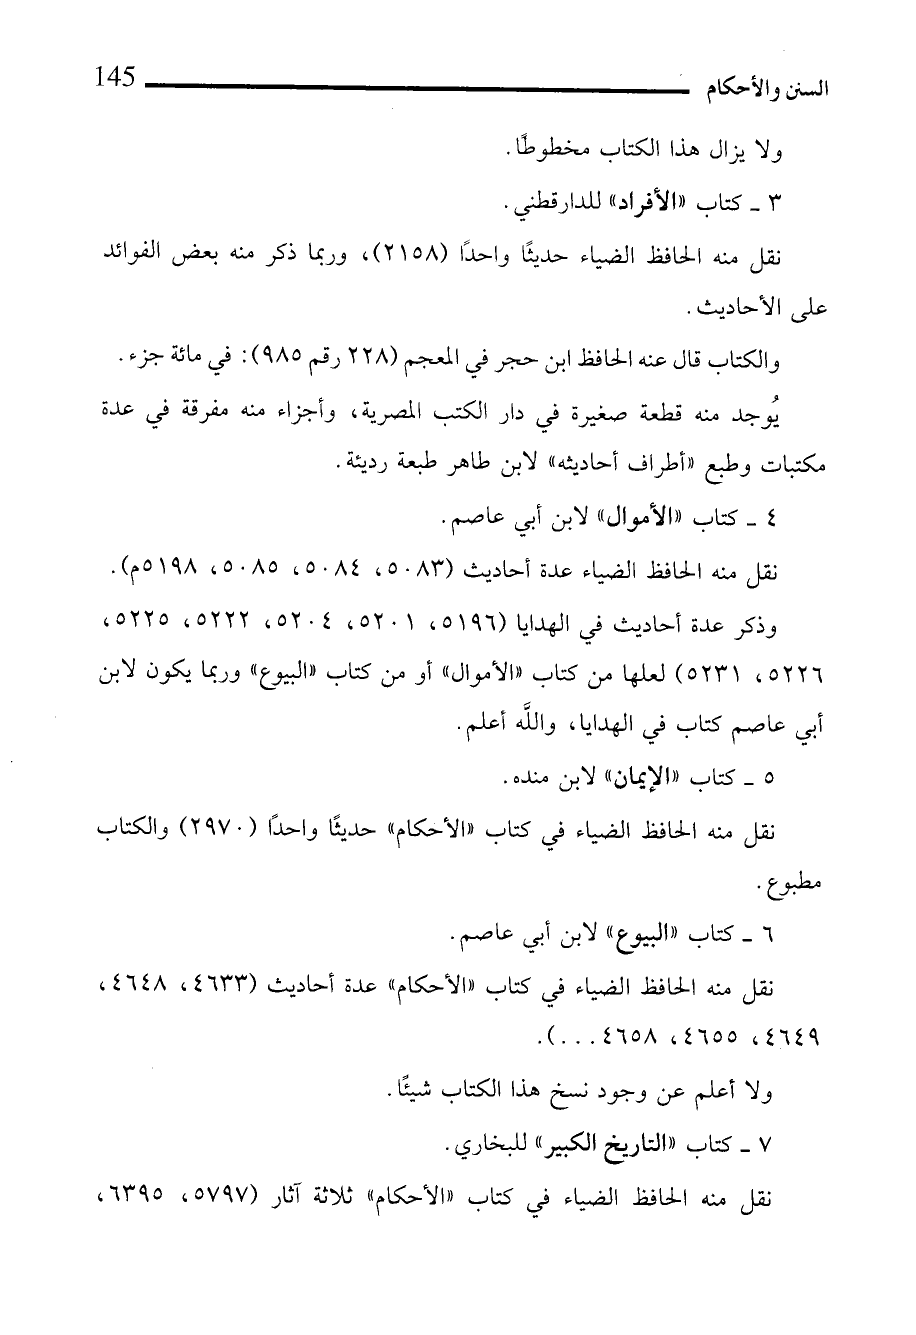 السنن والأحكام 145
ولا يزال هذا الكتاب مخطوطًا.
٣ ـ كتاب «الأفراد» للدارقطني.
نقل منه الحافظ الضياء حديثًا واحدًا (٢١٥٨)، وربما ذكر منه بعض الفوائد
على الأحاديث.
والكتاب قال عنه الحافظ ابن حجر في المعجم (٢٢٨ رقم ٩٨٥): في مائة جزء.
يُوجد منه قطعة صغيرة في دار الكتب المصرية، وأجزاء منه مفرقة في عدة
مكتبات وطبع «أطراف أحاديثه» لابن طاهر طبعة رديئة.
٤ ـ كتاب «الأموال» لابن أبي عاصم.
نقل منه الحافظ الضياء عدة أحاديث (٥٠٨٣، ٥٠٨٤، ٥٠٨٥، ٥١٩٨م).
وذكر عدة أحاديث في الهدايا (٥١٩٦، ٥٢٠١، ٥٢٠٤، ٥٢٢٢، ٥٢٢٥،
٥٢٢٦، ٥٢٣١) لعلها من كتاب «الأموال» أو من كتاب «البيوع» وربما يكون لابن
أبي عاصم كتاب في الهدايا، واللَّه أعلم.
٥ ـ كتاب «الإيمان» لابن منده.
نقل منه الحافظ الضياء في كتاب «الأحكام» حديثًا واحدًا (٢٩٧٠) والكتاب
مطبوع.
٦ ـ كتاب «البيوع» لابن أبي عاصم.
نقل منه الحافظ الضياء في كتاب «الأحكام» عدة أحاديث (٤٦٣٣، ٤٦٤٨،
٤٦٤٩، ٤٦٥٥، ٤٦٥٨...).
ولا أعلم عن وجود نسخ هذا الكتاب شيئًا.
٧ ـ كتاب «التاريخ الكبير» للبخاري.
نقل منه الحافظ الضياء في كتاب «الأحكام» ثلاثة آثار (٥٧٩٧، ٦٣٩٥،